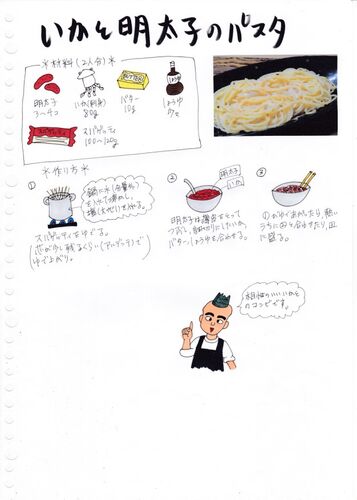 いかと明太子のパスタ
*材料(2人分)*
明太子
いか(刺身)
80g
バター
10g
しょうゆ
少々
スパゲッティ
100〜120g
*作り方*
①
鍋に水(分量外)
を入れて沸かし、
塩(大さじ1)を入れる。
スパゲッティをゆでる。
芯が少し残るくらい(アルデンテ)で
ゆで上がり。
②
明太子
いか
明太子は薄皮をとって
つぶし、細切りにしたいか、
バター、しょうゆを合わせる。
③
①がゆであがったら、熱い
うちに②と合わせたら、皿
に盛る。
相性のいいいかと
のコンビです。